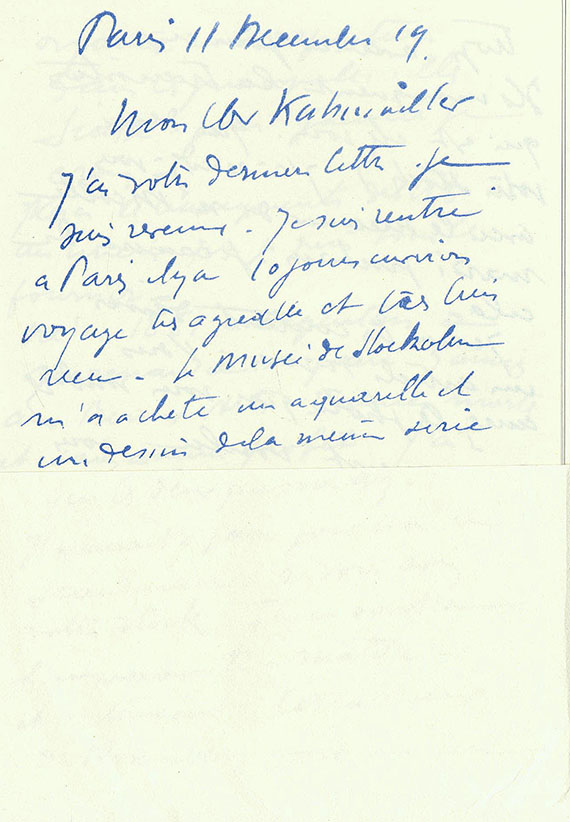 Paris 11 Decembre 19.
Mon cher Kahnweiller
J'ai votre derniere lettre. Je
suis revenu. Je suis rentre
a Paris il y a 10 jours environ
voyage tres agreable et tres bien
recu - le Musée de Stockolm
m'a acheté un aquarelle et
un dessin de la meme serie